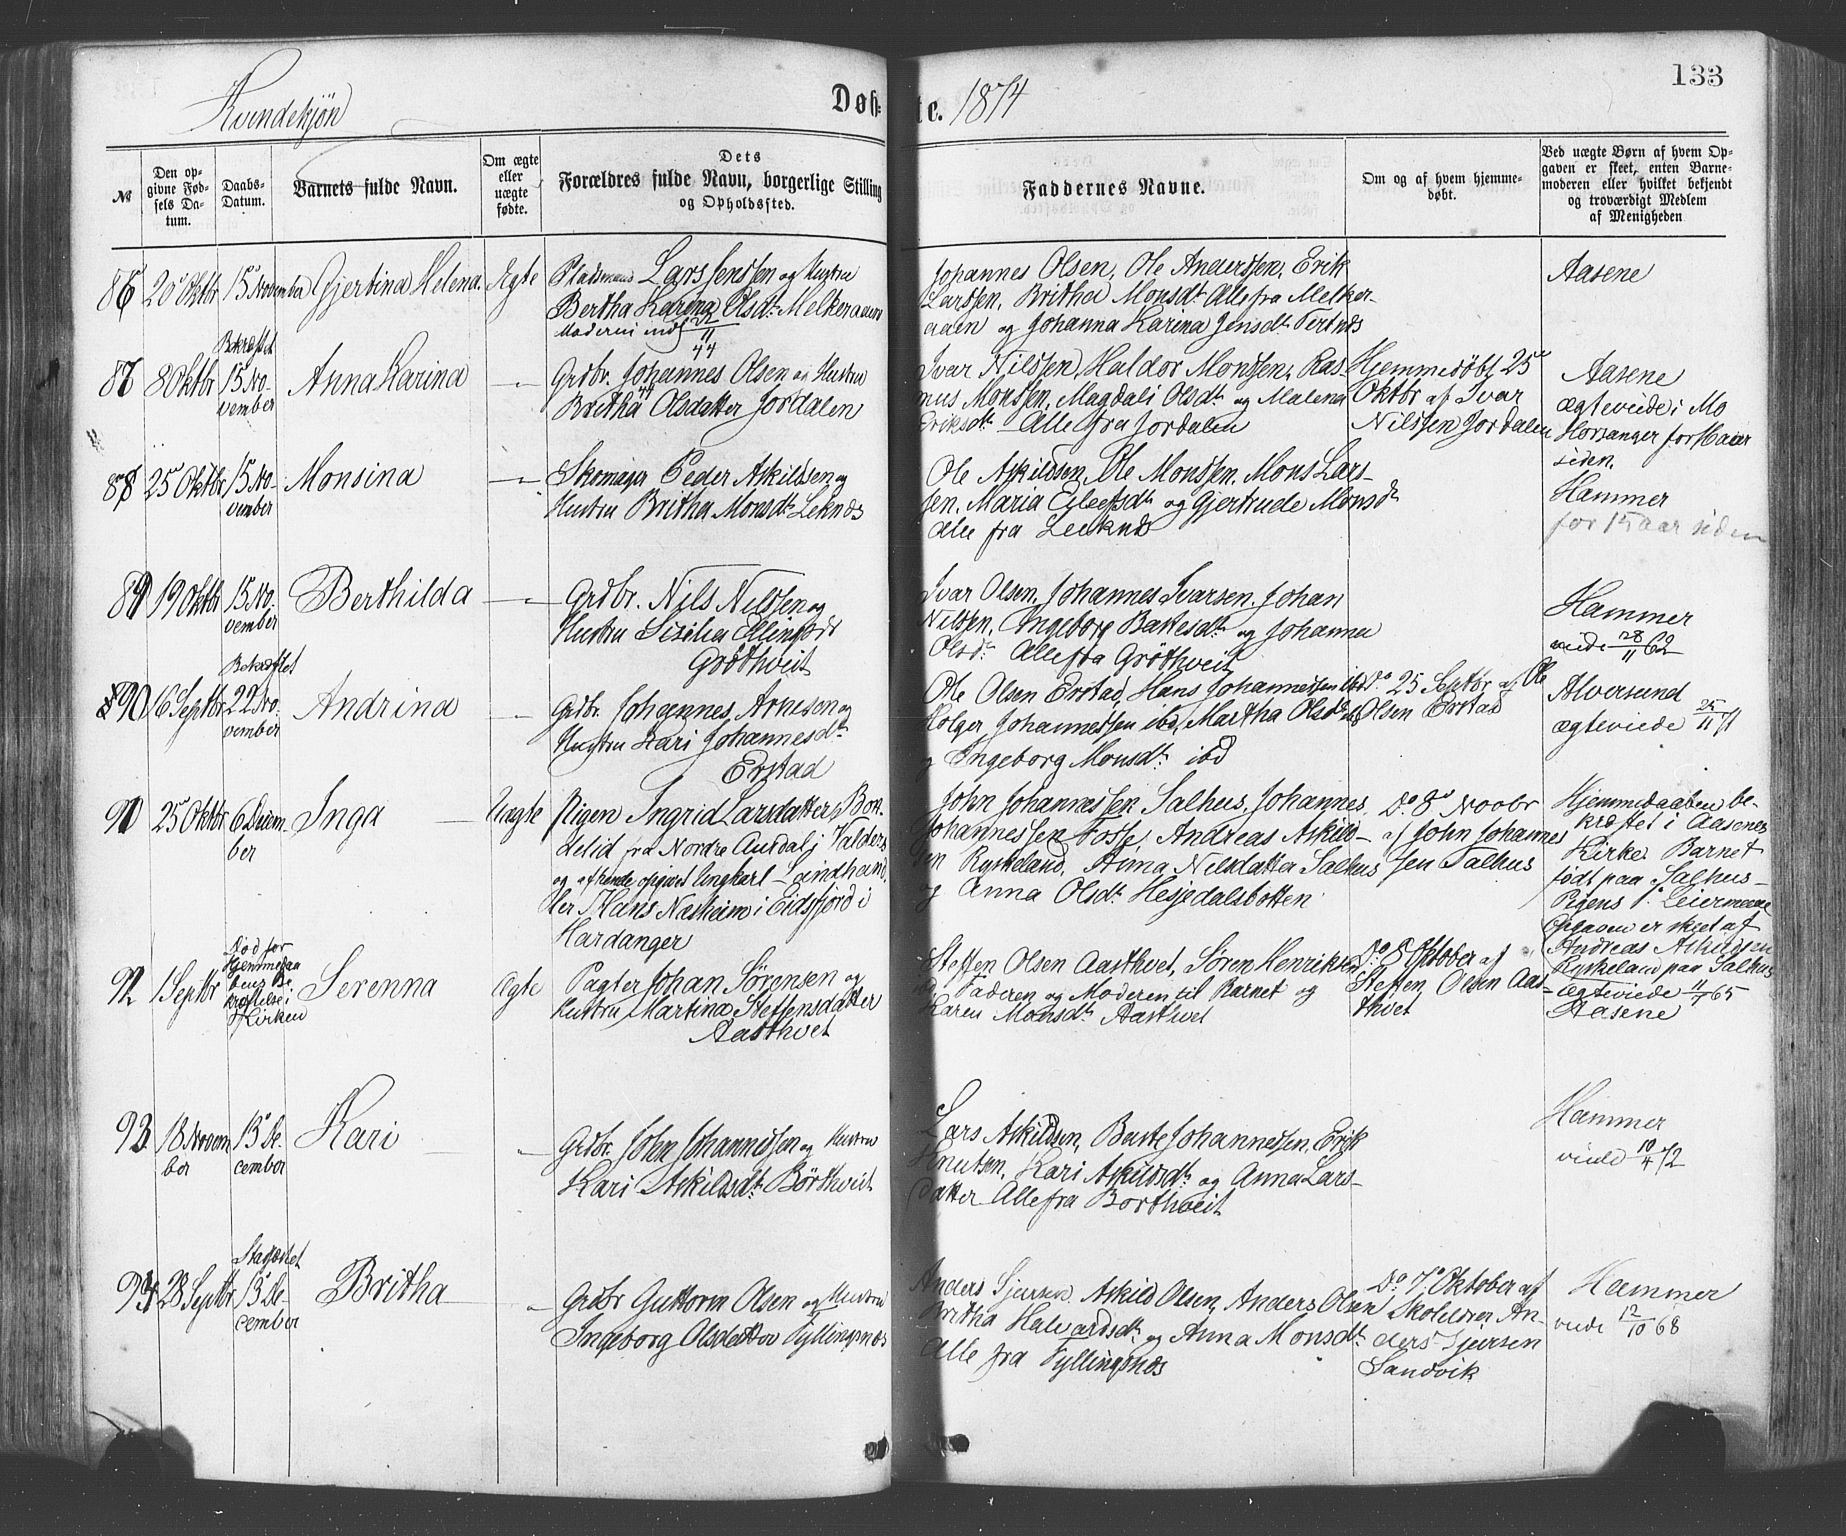 Kvindekjön
Døbte. 1874
133
№
Den opgivne Fødsels Datum.
Daabs-Datum.
Barnets fulde Navn.
Om ægte eller uægte fødte.
Dets
Forældres fulde Navn, borgerlige Stilling
og Opholdsted.
Faddernes Navne.
Om og af hvem hjemmedøbt.
Ved uægte Børn af hvem Opgaven er skeet, enten Barnemoderen eller hvilket bekjendt og troværdigt Medlem af Menigheden
86 20 Oktbr 15 November Gjertina Helena. Ægte
Pladsmand Lars Jenssen og Hustru
Bertha Karina Olsdtr Melkeraaen
Moderen indf 22/11 44
Johannes Olsen, Ole Anderssen, Erik
Larssen, Britha Monsdtr Alle fra Melker-
aaen og Johanna Karina Jensdtr Tertnes
Aasene
87 8 Oktbr Bekræftet 15 November Anna Karina
Grdbr. Johannes Olsen og Hustru
Britha Olsdatter Jordalen
Ivar Nilssen, Haldor Monssen, Ras-
mus Monssen, Magdali Olsdtr og Malena
Eriksdtr Alle fra Jordalen
Hjemmedøbt 25
Oktbr af Ivar
Nilssen Jordalen
Aasene
ægteviede i
siden.
88 25 Oktbr 15 November Monsina
Skomager Peder Askildsen og
Hustru Britha Monsdtr Leknes
Ole Askildsen, Ole Monssen, Mons Lars-
sen, Maria og Gjertrude Monsdtr
Alle fra Leeknes
Hammer
for 15 aar siden
89 19 Oktbr 15 November Berthilda
Grdbr. Nils Nilssen og
Hustru Sizilia Ellingsdtr
Gröthveit
Ivar Olsen, Johannes Ivarsen, Johan
Nilssen, Ingeborg og Johanna
Olsdtr Alle fra Gröthveit
Hammer
viede 28/11 62
90 16 Septbr Bekræftet 22 November Andrina
Grdbr. Johannes Arnesen og
Hustru Kari Johannesdtr
Erstad
Ole Olsen Erstad, Hans Johannessen ibd
Holger Johannessen ibd, Martha Olsdtr ibd
og Ingeborg Monsdtr ibd
Do 25 Septbr af Ole
Olsen Erstad
Alversund
ægteviede 25/11 71
91 25 Oktbr 6 December Inga Uægte
Pigen Ingrid Larsdatter
fra Nordre Aurdal i Valders
og afhende opgivet Ungkarl
Hans Næsheim i Eidsfjord i
Hardanger
John Johannessen Salhus, Johannes
Johannessen Fosse, Andreas Askild-
sen Rypkeland, Anna Nilsdatter Salhus
og Anna Olsdtr Hesjedalsbotten
Do 8 Novbr
af John Johannes
sen Salhus
Hjemmedaaben be-
kræftet i Aasenes
Kirke. Barnet
født paa Salhus
Pigens 1ste Leiermaal
Opgaven er skeet af
Andreas Askildsen
Rypkeland paa Salhus
92 1 Septbr Død før Hjemmedaabens Bekræftelse i Kirken Serenna Ægte
Pagter Johan Sörensen og
Hustru Martina Steffensdatter
Aasthvet
Steffen Olsen Aasthvet, Sören Henriksen
ibd, Faderen og Moderen til Barnet og
Karen Monsdtr Aasthvet
Do 8 Oktober af
Steffen Olsen Aas-
thvet
ægteviede 11/7 65
Aasene
93 18 November 13 December Kari
Grdbr. John Johannessen og Hustru
Kari Askildsdtr Börthveit
Lars Askildsen, Johannessen, Erik
Knutsen, Kari Askildsdtr og Anna Lars-
datter Alle fra Borthveit
Hammer
viede 10/4 72
94 28 Septbr Stadfæstet 13 December Britha
Grdbr Guttorm Olsen og Hustru
Ingeborg Olsdatter Fyllingsnæs
Anders Sjursen, Askild Olsen, Anders Olsen
Britha Halvardsdtr og Anna Monsdtr
Alle fra Fyllingsnæs
Do 7 Oktober af
Skolelærer An-
ders Sjursen
Sandvik
Hammer
viede 12/10 68